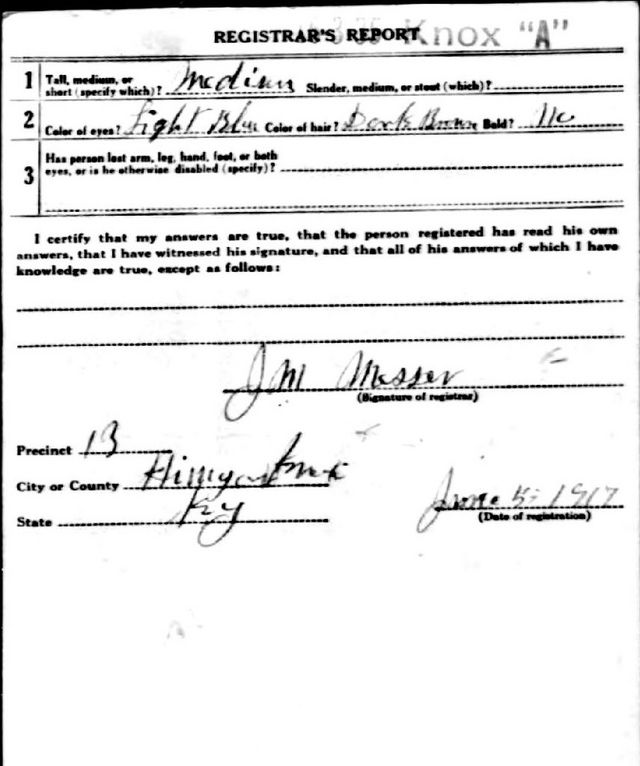 REGISTRAR'S REPORT Knox "A"
1 Tall, medium, or short (specify which)? Medium Slender, medium, or stout (which)?
2 Color of eyes? Light Blue Color of hair? Dark Brown Bald? No
3 Has person lost arm, leg, hand, foot, or both
eyes, or is he otherwise disabled (specify)?
I certify that my answers are true, that the person registered has read his own
answers, that I have witnessed his signature, and that all of his answers of which I have
knowledge are true, except as follows:
J M Messer
(Signature of registrar)
Precinct 13
City or County Himyar Knox
State Ky
June 5 1917
(Date of registration)